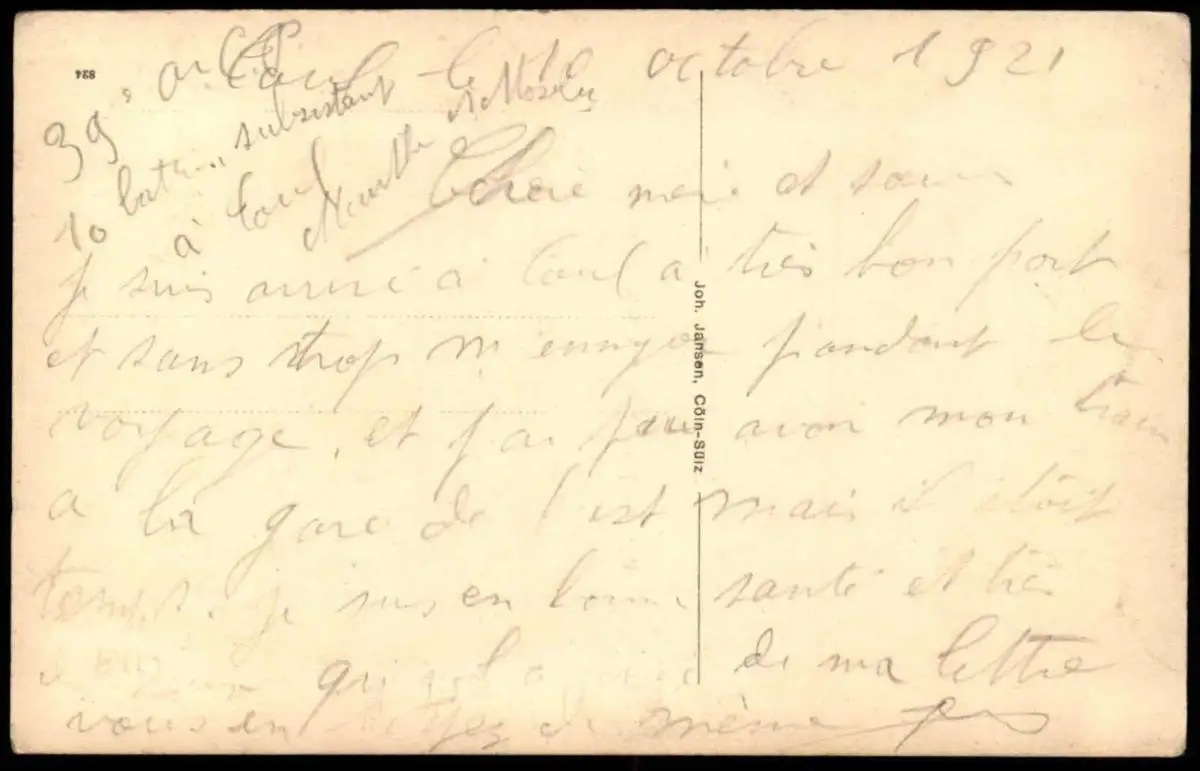 834
Toul le 10 octobre 1921
39e
10 subsistant
à Toul
Meurthe et Moselle
Chere mere et soeur
je suis arrivé à Toul a très bon port
et sans trop m'ennyer pandant le
voyage, et j'ai pu avoir mon train
a la gare de l'est mais il étoit
temps. je suis en bonne santé et tres
de ma lettre
vous en de même
Joh. Jansen, Cöln-Sülz